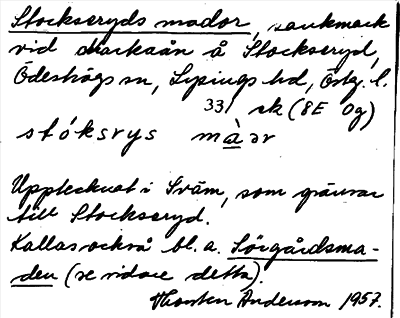 Stockseryds mador, sankmark
vid Narkaån å Stockseryd,
Ödeshögs sn, Lysings hd, Östg. l.
33, ek (8E 0g)
stóksrys màər
Upptecknat i Sväm, som gränsar
till Stockseryd.
Kallas också bl. a. Sörgårdsma-
den (se vidare detta).
Thorsten Andersson 1957.